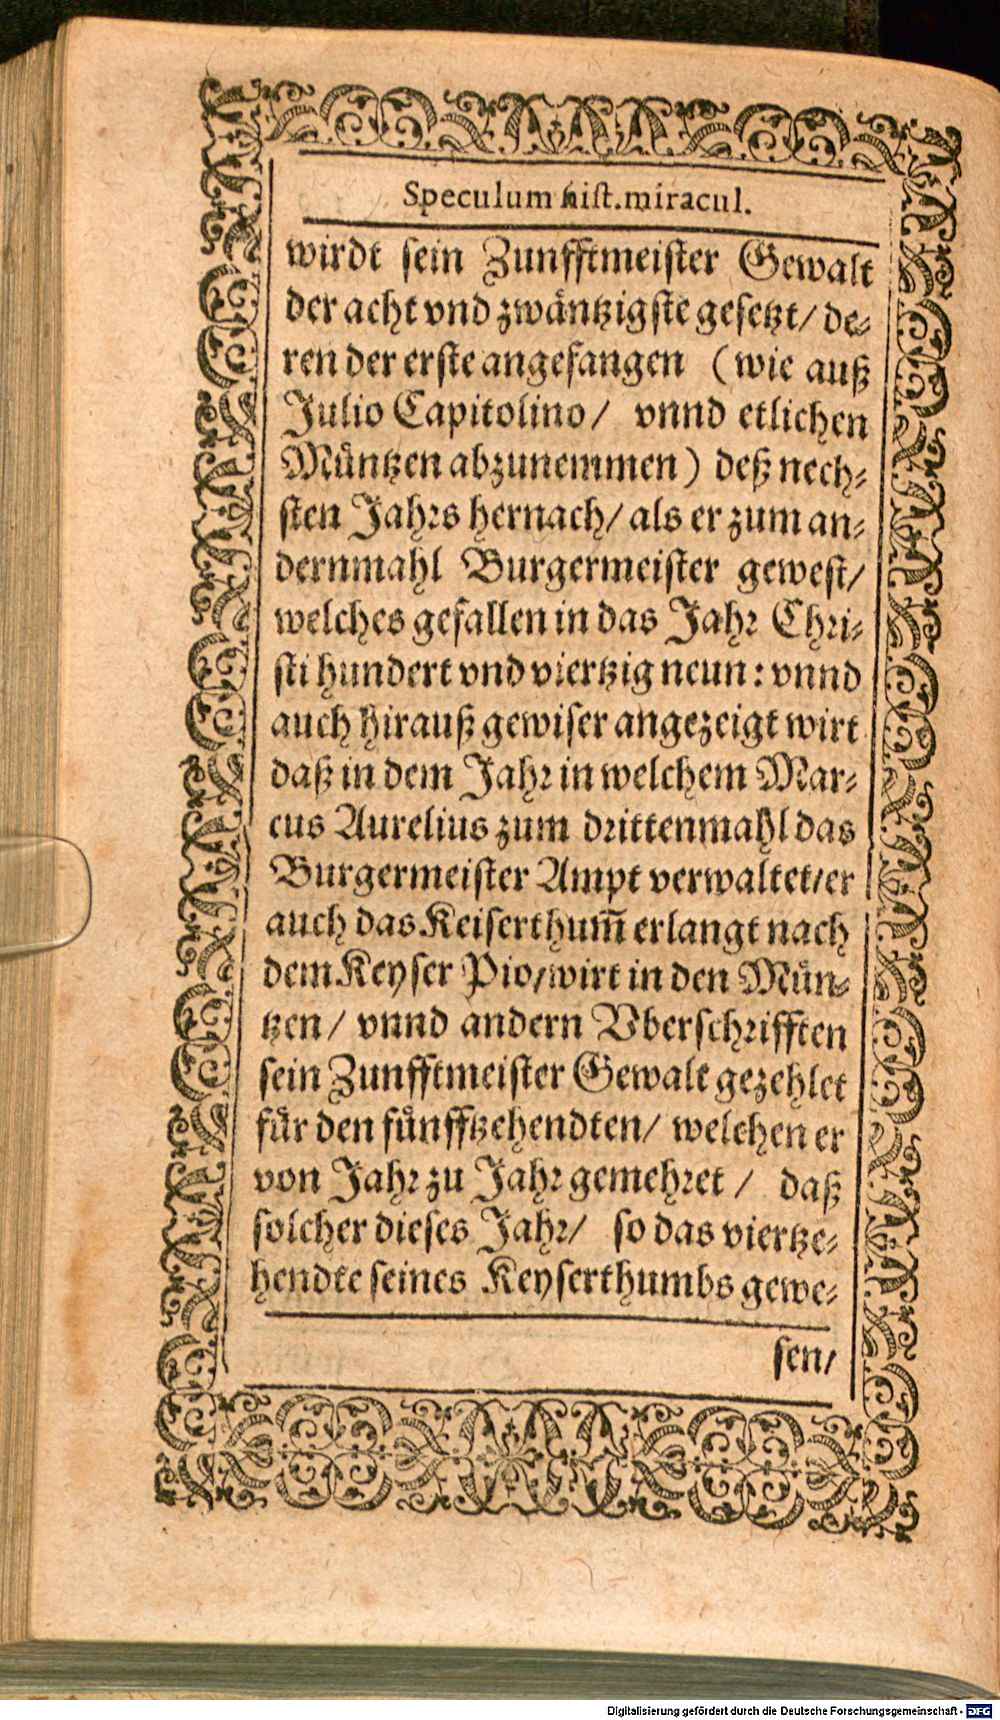 Speculum hist.miracul.
wirdt sein Zunfftmeister Gewalt
der acht vnd zwäntzigste gesetzt/ de-
ren der erste angefangen (wie auß
Julio Capitolino/ vnnd etlichen
Müntzen abzunemmen) deß nech-
sten Jahrs hernach/ als er zum an-
dernmahl Burgermeister gewest/
welches gefallen in das Jahr Chri-
sti hundert vnd viertzig neun: vnnd
auch hirauß gewiser angezeigt wirt
daß in dem Jahr in welchem Mar-
cus Aurelius zum drittenmahl das
Burgermeister Ampt verwaltet/er
auch das Keiserthum̄ erlangt nach
dem Keyser Pio/wirt in den Mün-
tzen/ vnnd andern Vberschrifften
sein Zunfftmeister Gewalt gezehlet
für den fünfftzehendten/ welchen er
von Jahr zu Jahr gemehret/ daß
solcher dieses Jahr/ so das viertze-
hendte seines Keyserthumbs gewe-
sen/
Digitalisierung gefördert durch die Deutsche Forschungsgemeinschaft - DFG